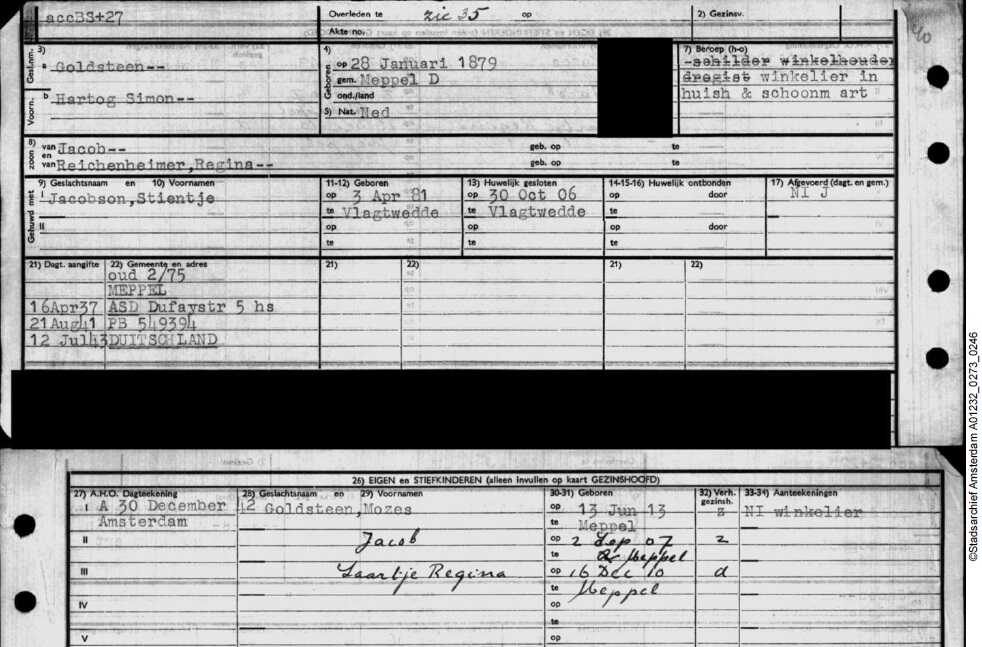 accBS+27
Overleden te zie 35 op
Akte no.
2) Gezinsv.
3)
Gesl.nm. a Goldsteen--
Voorn. b Hartog Simon--
4)
Geboren op 28 Januari 1879
gem. Meppel D
ond./land
5) Nat. Ned
7) Beroep (h-o)
-schilder winkelhouder
drogist winkelier in
huish & schoonm art
8) zoon van Jacob-- geb. op te
en
van Reichenheimer,Regina-- geb. op te
Gehuwd met
9) Geslachtsnaam en 10) Voornamen
11-12) Geboren
13) Huwelijk gesloten
14-15-16) Huwelijk ontbonden
17) Afgevoerd (dagt. en gem.)
I Jacobson,Stientje op 3 Apr 81 op 30 Oct 06 op door NI J
te Vlagtwedde te Vlagtwedde te
II op op op door
te te te
21) Dagt. aangifte 22) Gemeente en adres 21) 22) 21) 22)
oud 2/75
MEPPEL
16Apr37 ASD Dufaystr 5 hs
21Aug41 PB 549394
12 Jul43 DUITSCHLAND
26) EIGEN en STIEFKINDEREN (alleen invullen op kaart GEZINSHOOFD)
27) A.H.O. Dagteekening 28) Geslachtsnaam en 29) Voornamen 30-31) Geboren 32) Verh. gezinsh. 33-34) Aanteekeningen
I A 30 December 42 Goldsteen,Mozes op 13 Jun 13 z NI winkelier
Amsterdam te Meppel
II Jacob op 2 Sep 07 z
te Meppel
III Saartje Regina op 16 Dec 10 d
te Meppel
IV op
te
V op
©Stadsarchief Amsterdam A01232_0273_0246